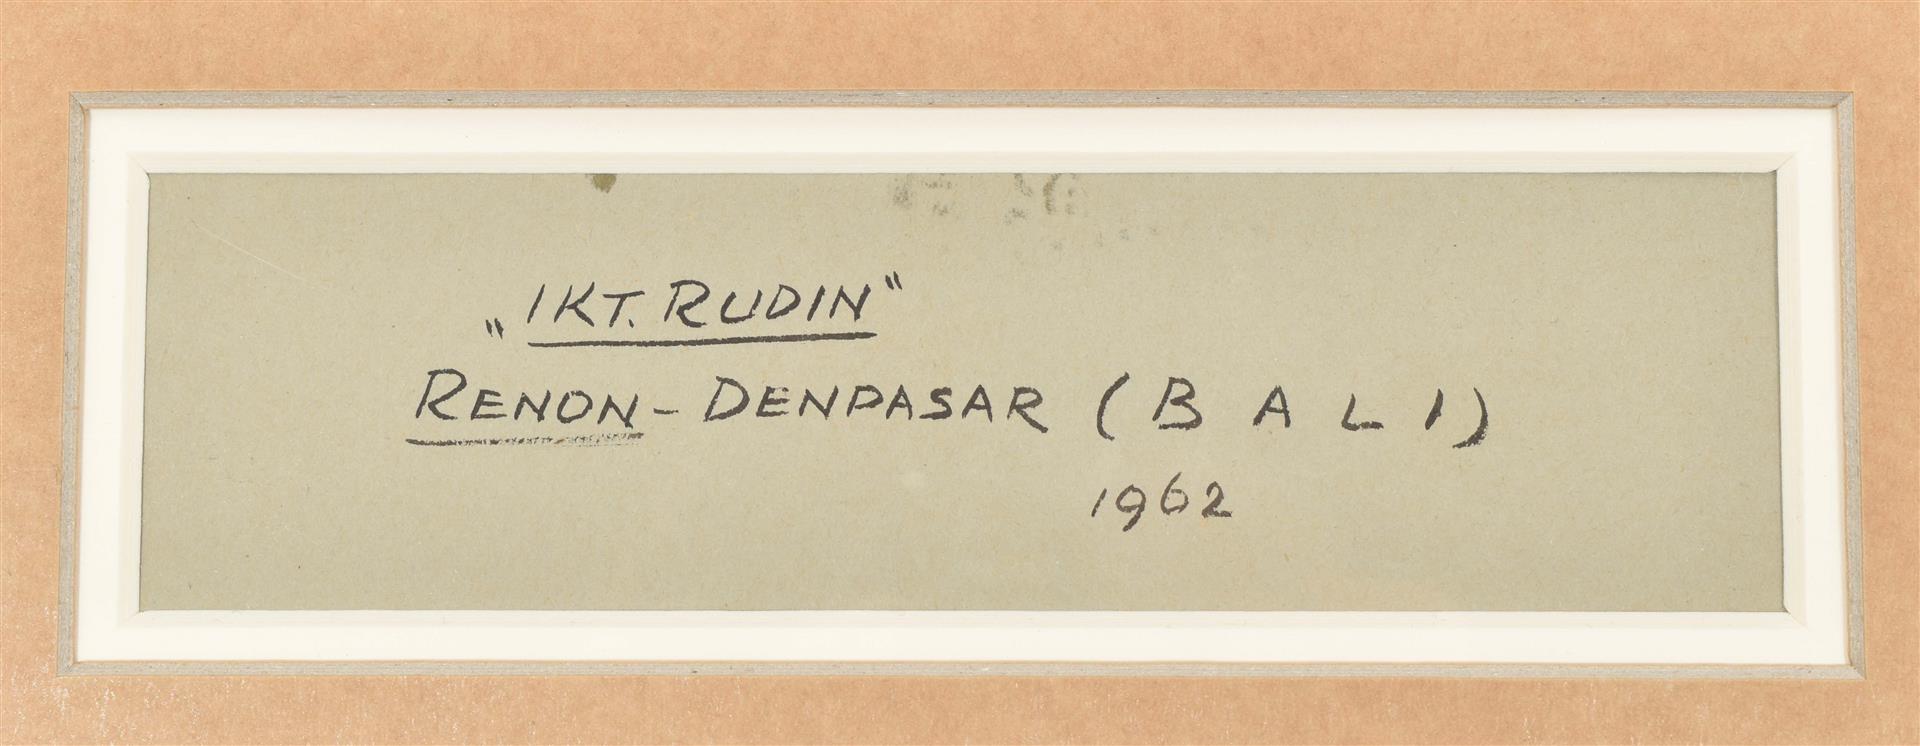 „IKT. RUDIN"
RENON - DENPASAR (BALI)
1962